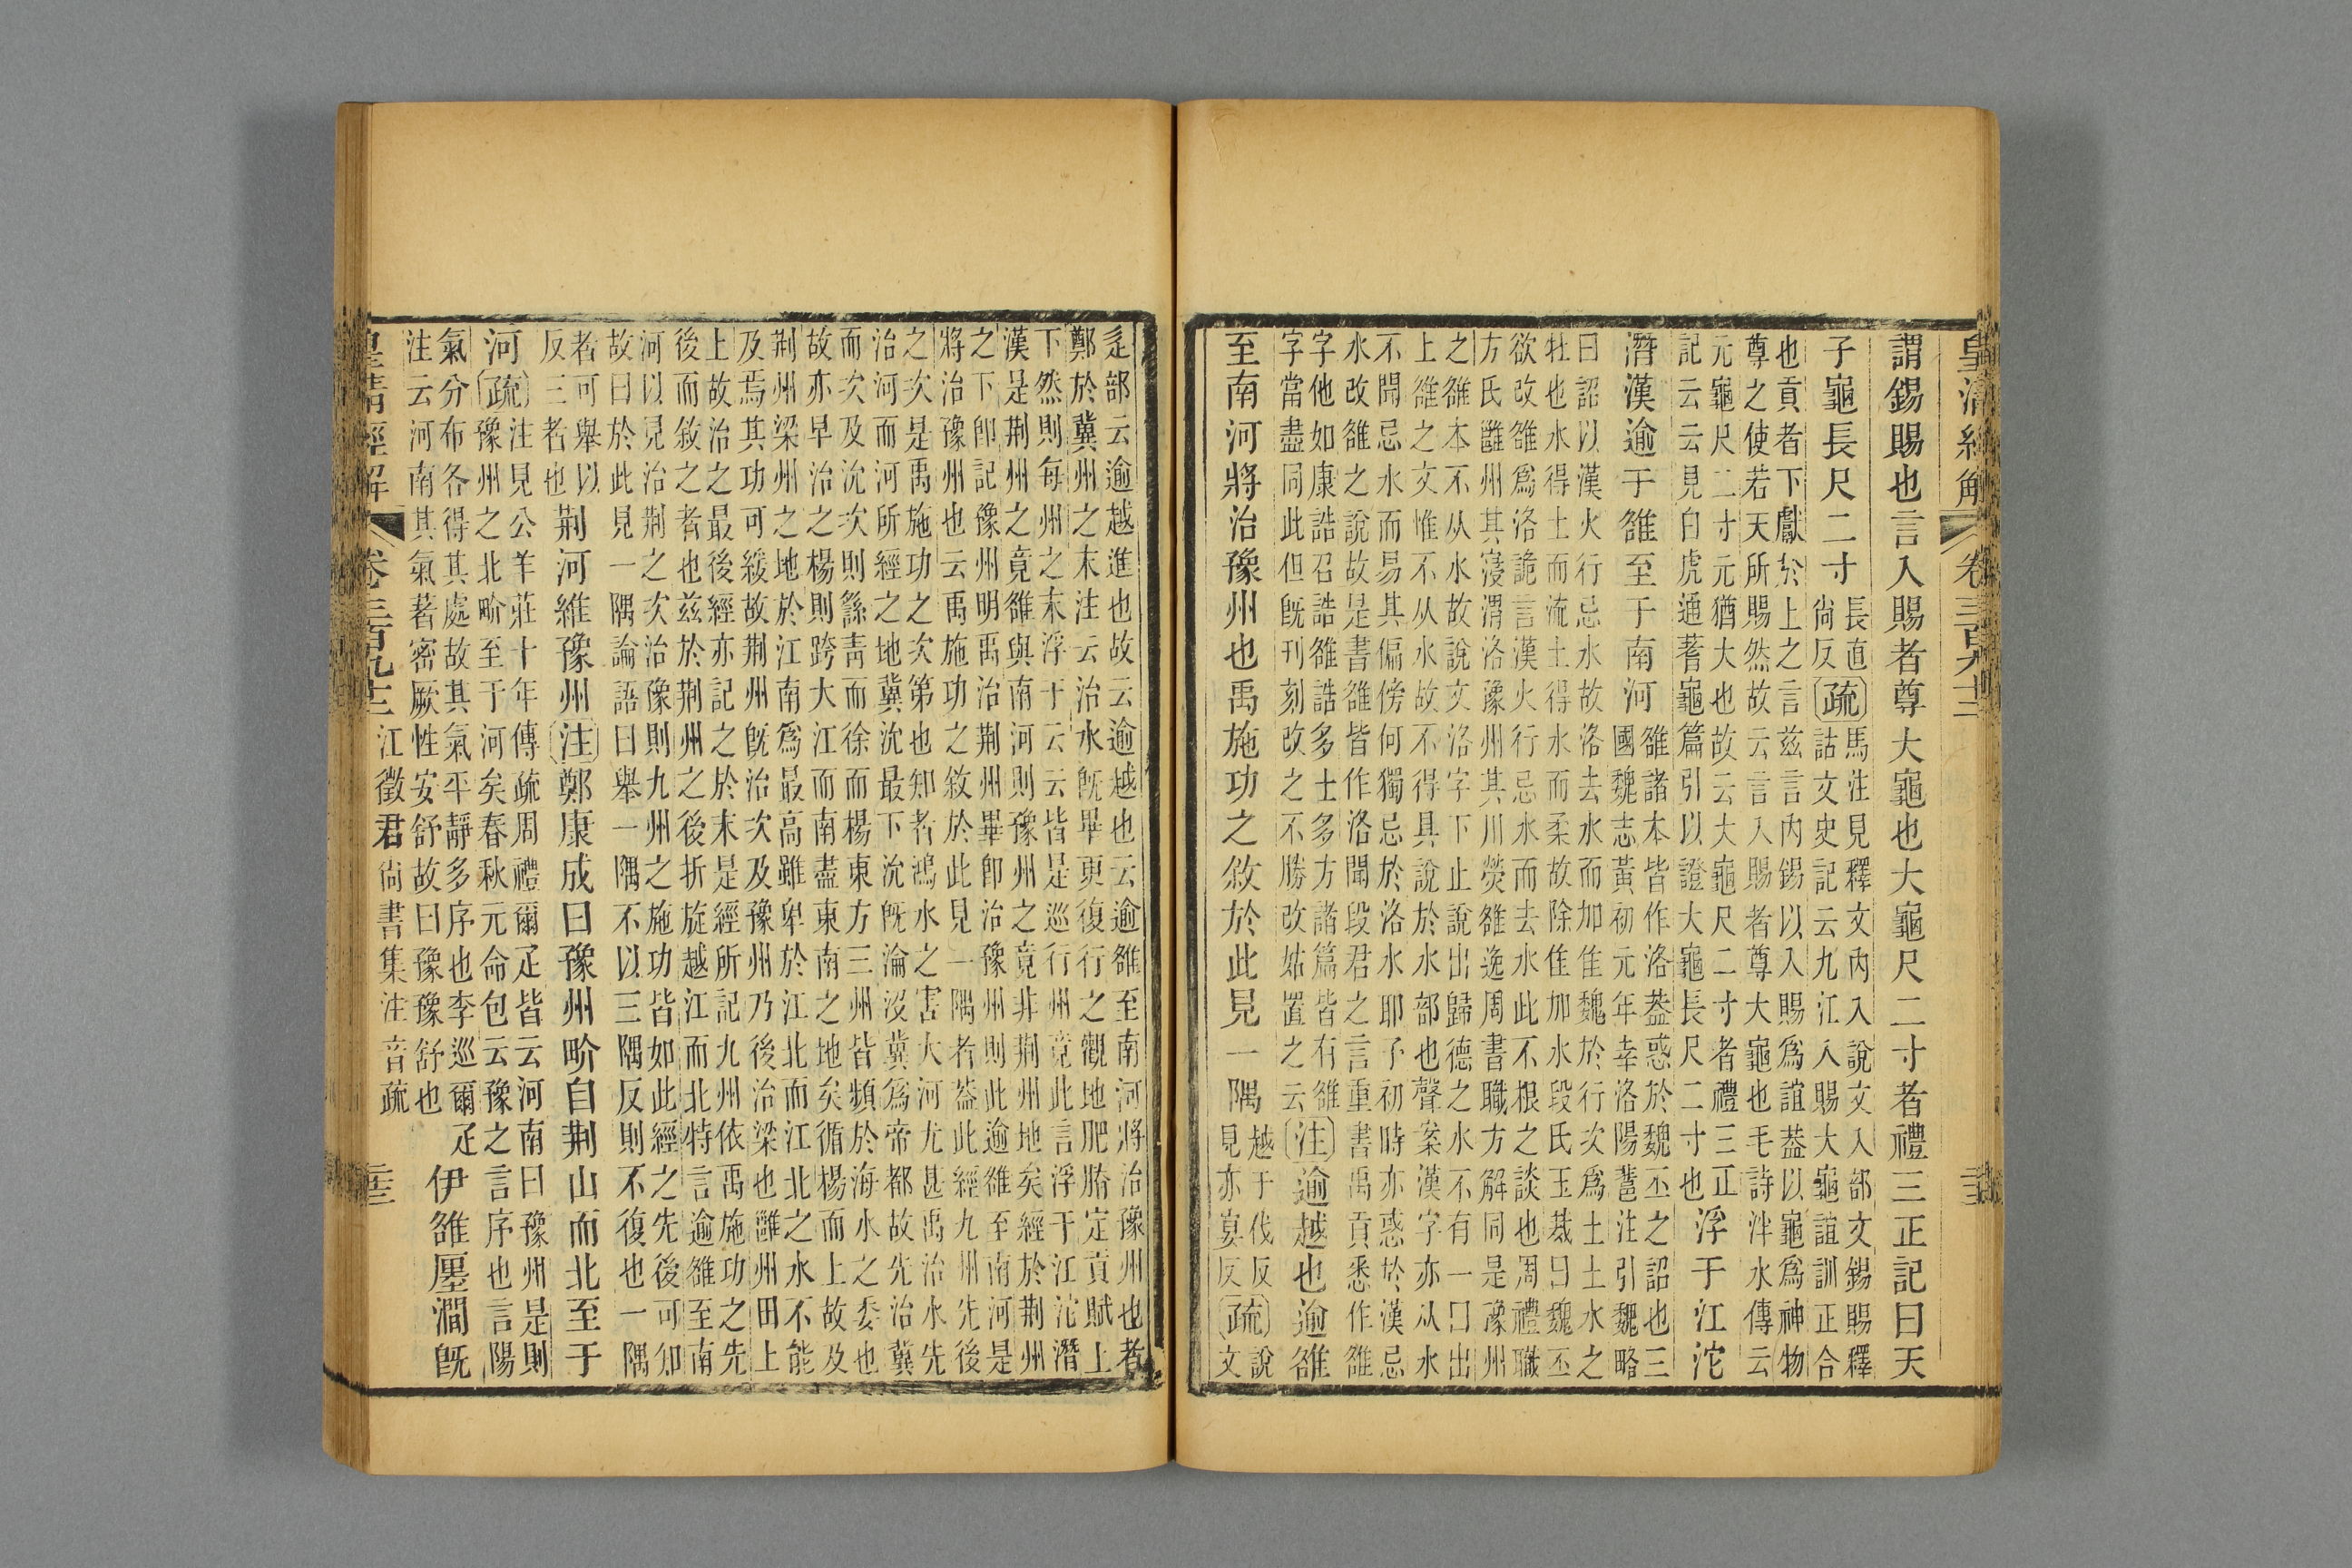 皇清經解 卷三百九十三
謂錫賜也言入賜者尊大龜也大龜尺二寸者禮三正記曰天
子龜長尺二寸
長直
尙反
疏
馬注見釋文內入說文入部文錫賜釋
詁文史記云九江入賜大龜誼訓正合
也貢者下獻於上之言茲言內錫以入賜爲誼葢以龜爲神物
尊之使若天所賜然故云言入賜者尊大龜也毛詩泮水傳云
元龜尺二寸元猶大也故云大龜尺二寸者禮三正
記云云見白虎通蓍龜篇引以證大龜長尺二寸也
浮于江沱
潛漢逾于雒至于南河
雒諸本皆作洛葢惑於魏丕之詔也三
國魏志黃初元年幸洛陽裴注引魏略
曰詔以漢火行忌水故洛去水而加隹魏於行次爲土土水之
牡也水得土而流土得水而柔故除隹加水段氏玉裁曰魏丕
欲改雒爲洛詭言漢火行忌水而去水此不根之談也周禮職
方氏雝州其寖渭洛豫州其川熒雒逸周書職方解同是豫州
之雒本不从水故說文洛字下止說出歸德之水不有一曰出
上雒之文惟不从水故不得具說於水部也聲案漢字亦从水
不聞忌水而易其偏傍何獨忌於洛水耶予初時亦惑於漢忌
水改雒之說故是書雒皆作洛聞段君之言重書禹貢悉作雒
字他如康誥召誥雒誥多士多方諸篇皆有雒
字當盡同此但旣刊刻改之不勝改姑置之云
注 逾越也逾雒
至南河將治豫州也禹施功之敘於此見一隅
越于伐反
見亦宴反
疏
說
文
辵部云逾越進也故云逾越也云逾雒至南河將治豫州也者
鄭於冀州之末注云治水旣畢更復行之觀地肥瘠定貢賦上
下然則每州之末浮于云云皆是巡行州竟此言浮于江沱潛
漢是荆州之竟雒與南河則豫州之竟非荆州地矣經於荆州
之下卽記豫州明禹治荆州畢卽治豫州則此逾雒至南河是
將治豫州也云禹施功之敘於此見一隅者葢此經九州先後
之次是禹施功之次第也知者鴻水之害大河尤甚禹治水先
治河而河所經之地冀沇最下沇旣淪沒冀爲帝都故先治冀
而次及沇次則繇靑而徐而楊東方三州皆瀕於海水之委也
故亦早治之楊則跨大江而南盡東南之地矣循楊而上故及
荆州梁州之地於江南爲最高雖卑於江北而江北之水不能
及焉其功可緩故荆州旣治次及豫州乃後治梁也雝州田上
上故治之最後經亦記之於末是經所記九州依禹施功之先
後而敘之者也茲於荆州之後折旋越江而北特言逾雒至南
河以見治荆之次治豫則九州之施功皆如此經之先後可知
故曰於此見一隅論語曰舉一隅不以三隅反則不復也一隅
者可舉以
反三者也
荆河維豫州 注 鄭康成曰豫州畍自荆山而北至于
河 疏
注見公羊莊十年傳疏周禮爾疋皆云河南曰豫州是則
豫州之北畍至于河矣春秋元命包云豫之言序也言陽
氣分布各得其處故其氣平靜多序也李巡爾疋
注云河南其氣著密厥性安舒故曰豫豫舒也
伊雒廛澗旣
皇清經解 卷三百九十三 江徵君尙書集注音疏